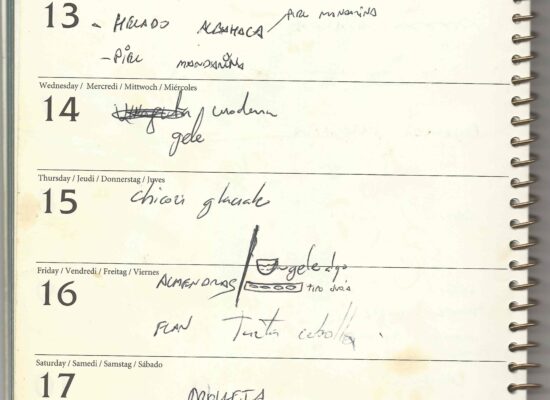 13 - HELADO ALBAHACA / PIEL MANDARINA
- PIEL MANDARINA
Wednesday / Mercredi / Mittwoch / Miércoles
14 moderna
gele
Thursday / Jeudi / Donnerstag / Jueves
15 chicorii glaciale
Friday / Vendredi / Freitag / Viernes
16 ALMENDRAS / gele algo
tipo
FLAN Tarta cebolla.
Saturday / Samedi / Samstag / Sábado
17